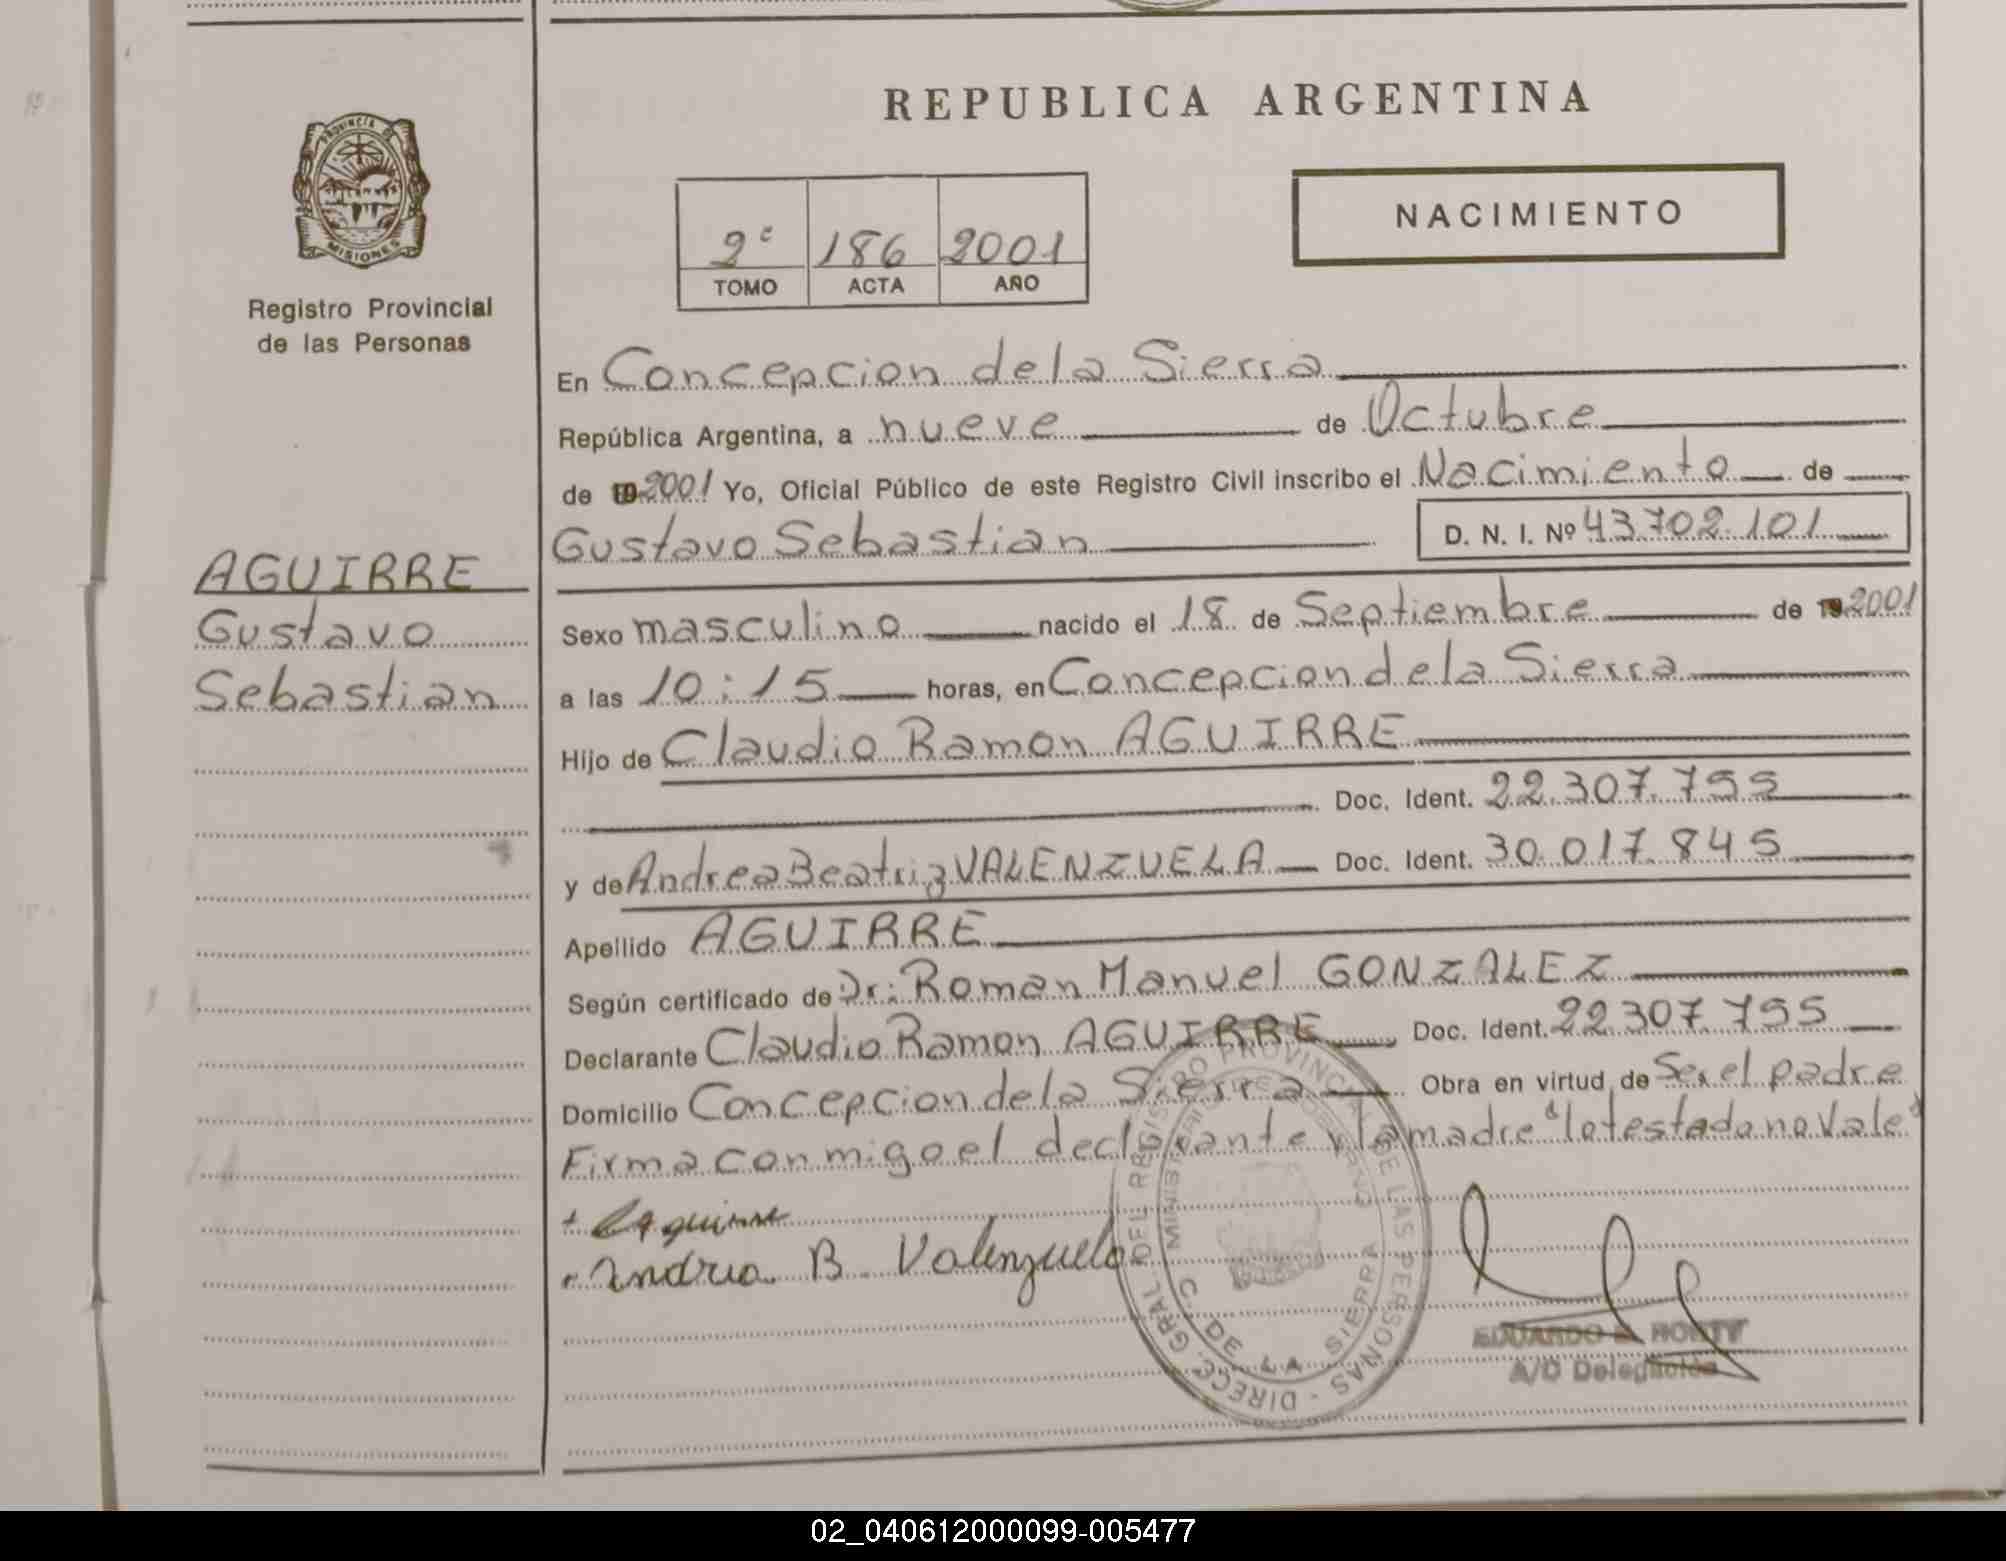 REPUBLICA ARGENTINA
PROVINCIA DE
MISIONES
Registro Provincial
de las Personas
2º 186 2001
TOMO ACTA AÑO
NACIMIENTO
En Concepcion de la Sierra
República Argentina, a nueve de Octubre
de 2001 Yo, Oficial Público de este Registro Civil inscribo el Nacimiento de
Gustavo Sebastian D. N. I. Nº 43.702.101
AGUIRRE
Gustavo
Sebastian
Sexo masculino nacido el 18 de Septiembre de 2001
a las 10:15 horas, en Concepcion de la Sierra
Hijo de Claudio Ramon AGUIRRE
Doc. Ident. 22.307.755
y de Andrea Beatriz VALENZUELA Doc. Ident. 30.017.845
Apellido AGUIRRE
Según certificado de Dr: Roman Manuel GONZALEZ
Declarante Claudio Ramon AGUIRRE Doc. Ident. 22.307.755
Domicilio Concepcion de la Sierra Obra en virtud de Ser el padre
Firma conmigo el declarante y la madre "lo testado no Vale"
Andrea B. Valenzuela
DIRECC. GRAL DEL REGISTRO PROVINCIAL DE LAS PERSONAS
MINISTERIO DE GOBIERNO
C. DE LA SIERRA
EDUARDO
A/C Delegación
02_040612000099-005477